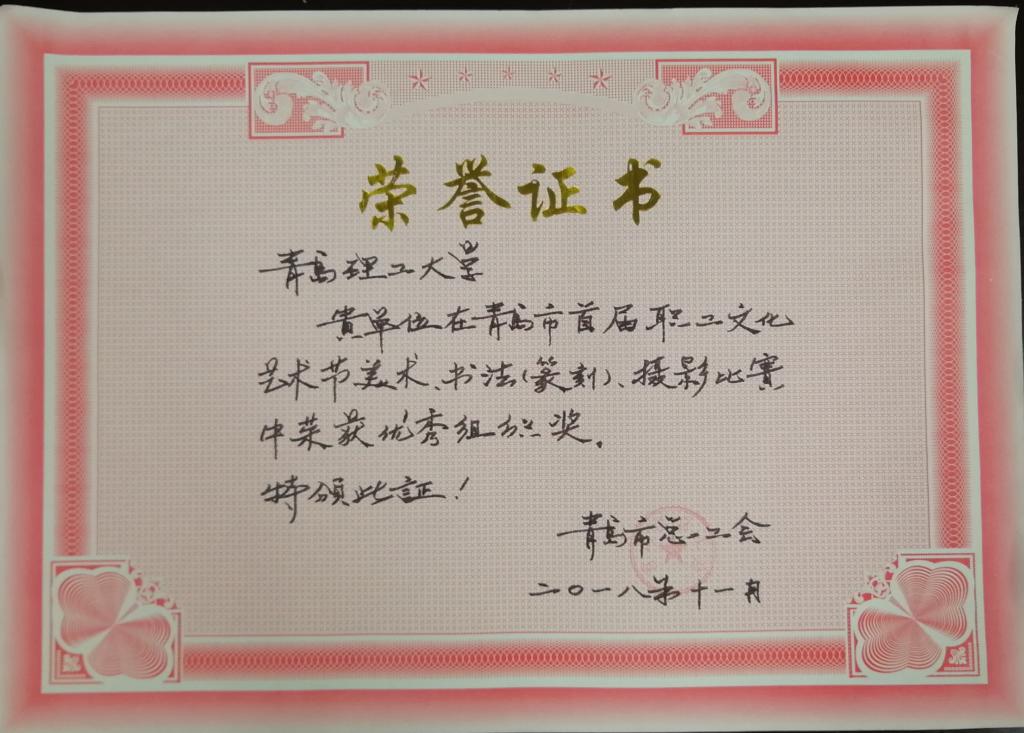 荣誉证书
青岛理工大学
貴单位在青島市首届职工文化
艺术节美术、书法(篆刻)、摄影比赛
中荣获优秀组织奖。
特颁此証！
青島市总工会
二〇一八年十一月